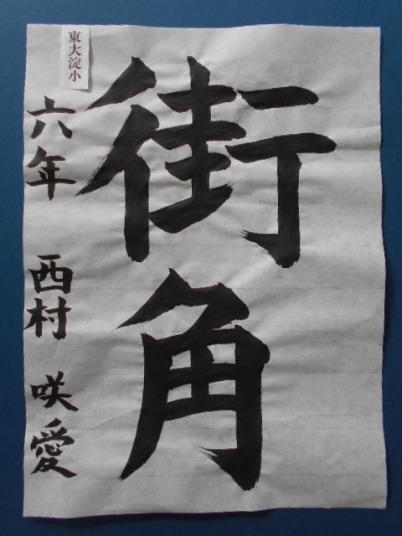 東大淀小
街角
六年 西村 咲愛